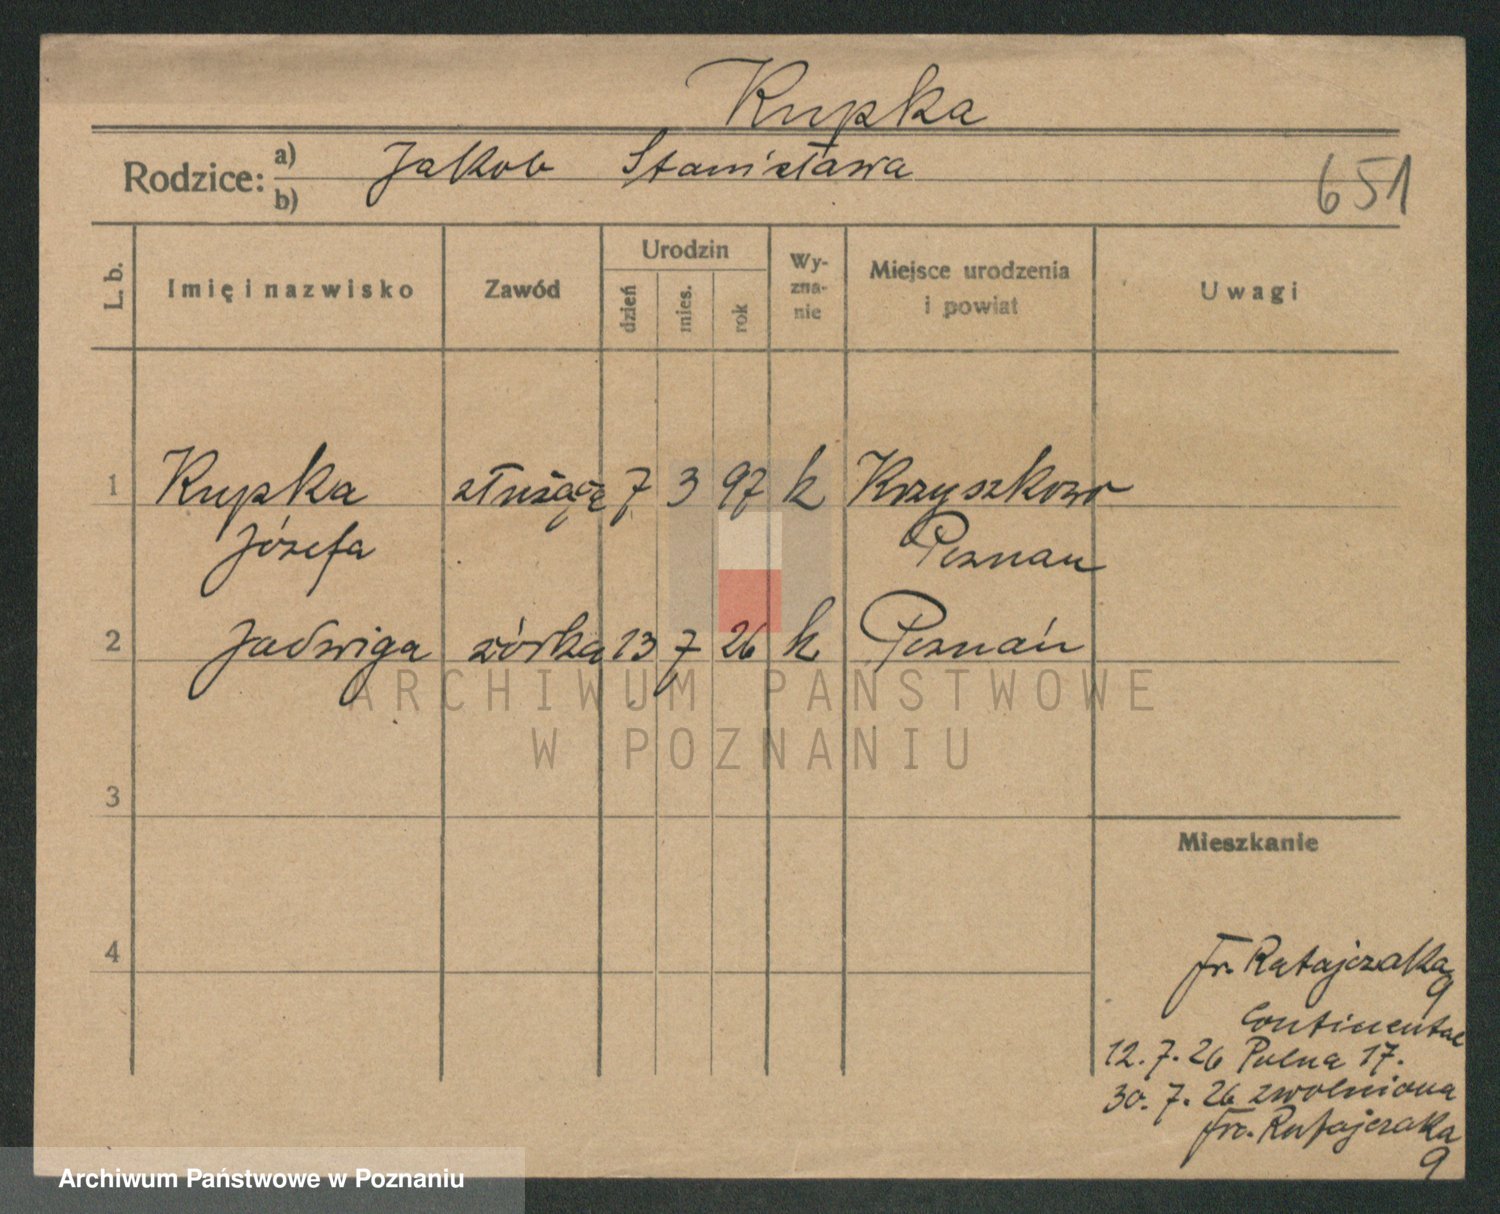 Kupka
Rodzice: a) Jakob Stanisława
b)
651
L. b.
Imię i nazwisko
Zawód
Urodzin
dzień
mies.
rok
Wy-
zna-
nie
Miejsce urodzenia
i powiat
Uwagi
1 Kupka służąca 7 3 97 k Krzyszkowo
Józefa Poznań
2 Jadwiga córka 13 7 26 k Poznań
ARCHIWUM PAŃSTWOWE
W POZNANIU
3
Mieszkanie
4
Fr. Ratajczaka
9
Continental
12. 7. 26 Polna 17.
30. 7. 26 zwolniona
Fr. Ratajczaka
9
Archiwum Państwowe w Poznaniu